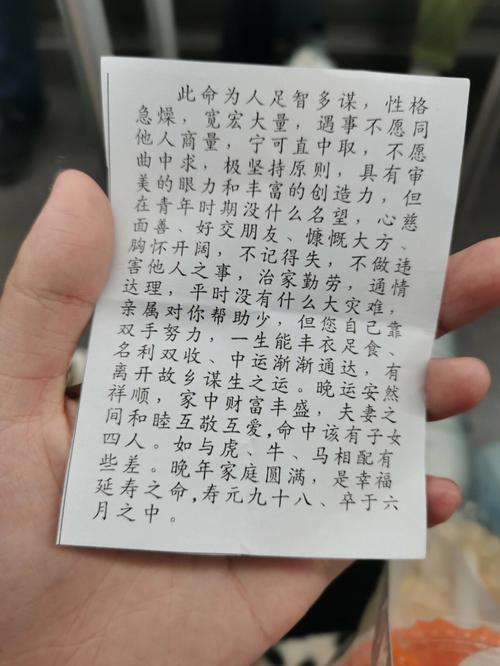 此命为人足智多谋，性格
急燥，宽宏大量，遇事不愿同
他人商量，宁可直中取，不愿
曲中求，极坚持原则，具有审
美的眼力和丰富的创造力，但
在青年时期没什么名望，心慈
面善、好交朋友、慷慨大方、
胸怀开阔，不记得失，不做违
害他人之事，治家勤劳，通情
达理，平时没有什么大灾难，
亲属对你帮助少，但您自己靠
双手努力，一生能丰衣足食、
名利双收、中运渐渐通达，有
离开故乡谋生之运。晚运安然
祥顺，家中财富丰盛，夫妻之
间和睦互敬互爱,命中该有子女
四人。如与虎、牛、马相配有
些差。晚年家庭圆满，是幸福
延寿之命,寿元九十八、卒于六
月之中。